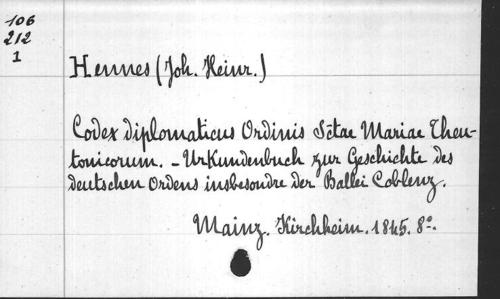 106
212
1
Hennes (Joh. Heinr.)
Codex diplomaticus Ordinis Sctae Mariae Theu-
tonicorum. - Urkundenbuch zur Geschichte des
deutschen Ordens insbesondre der Ballei Coblenz.
Mainz. Kirchheim. 1845. 8º.